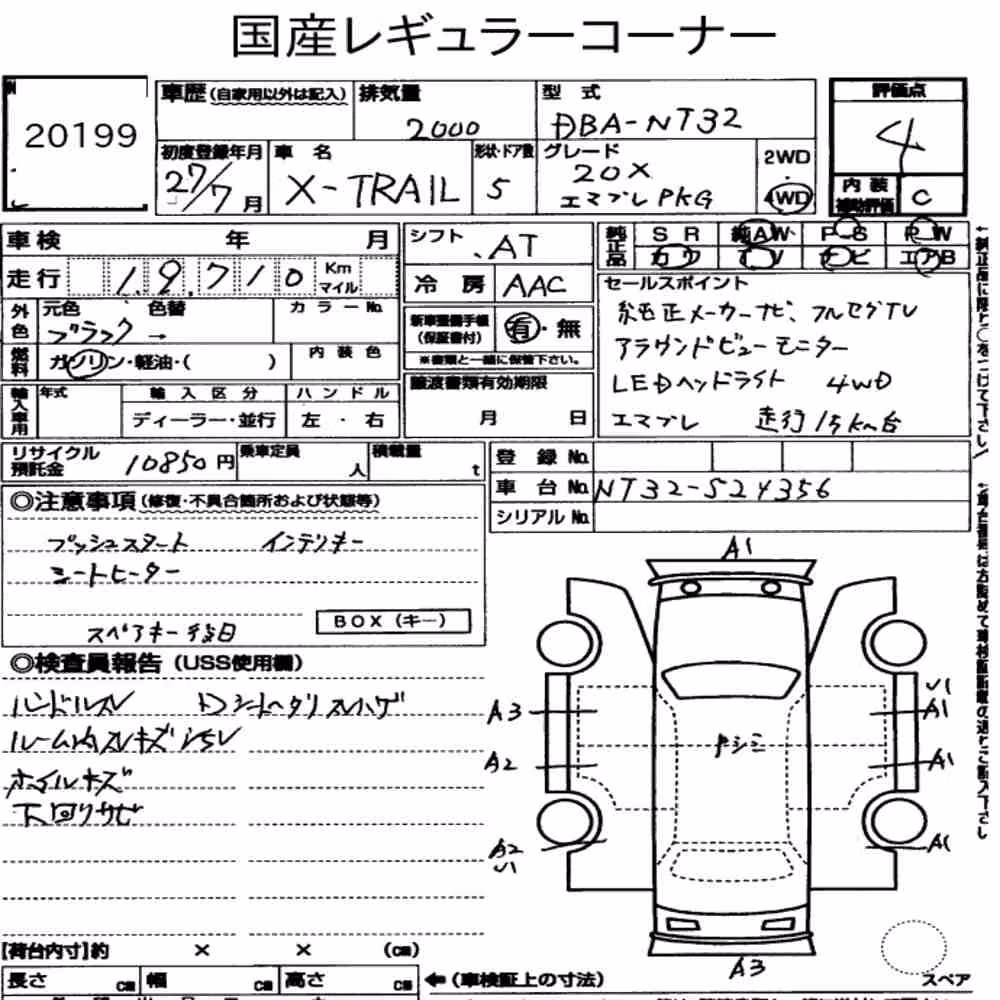 国産レギュラーコーナー
20199
車歴(自家用以外は記入) 排気量 型式 評価点
2000 DBA-NT32 4
初度登録年月 車名 形状・ドア数 グレード 2WD
27/7月 X-TRAIL 5 20X エマブレPKG 4WD
内装補助評価 C
車検 年 月 シフト AT 純正品 SR 純AW P-S P W
カワ TV ナビ エアB
走行 1.9.710 Km マイル 冷房 AAC
セールスポイント
外色 元色 色替 カラーNo. 新車整備手帳(保証書付) 有・無
ブラック → ※書類と一緒に保管下さい。
純正メーカーナビ、フルセグTV
アラウンドビューモニター
LEDヘッドライト 4WD
エマブレ 走行15km台
燃料 ガソリン・軽油・( ) 内装色
輸入車用 年式 輸入区分 ハンドル 譲渡書類有効期限
ディーラー・並行 左・右 月 日
リサイクル預託金 10850円 乗車定員 人 積載量 t 登録No.
車台No. NT32-524356
シリアルNo.
◎注意事項(修復・不具合箇所および状態等)
プッシュスタート インテリキー
シートヒーター
スペアキー後日 BOX(キー)
◎検査員報告(USS使用欄)
ハンドルスレ
ホイルキズ
下回りサビ
A1
A3 A1
A2 A1
A2 A1
A3
スペア
【荷台内寸】約 × × (cm)
長さ cm 幅 cm 高さ cm ←(車検証上の寸法)